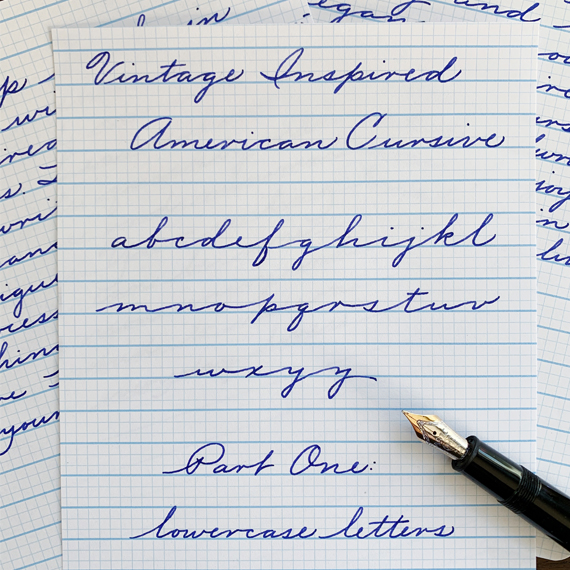 Vintage Inspired
American Cursive
abcdefghijkl
mnopqrstuv
wxyz
Part One:
lowercase letters